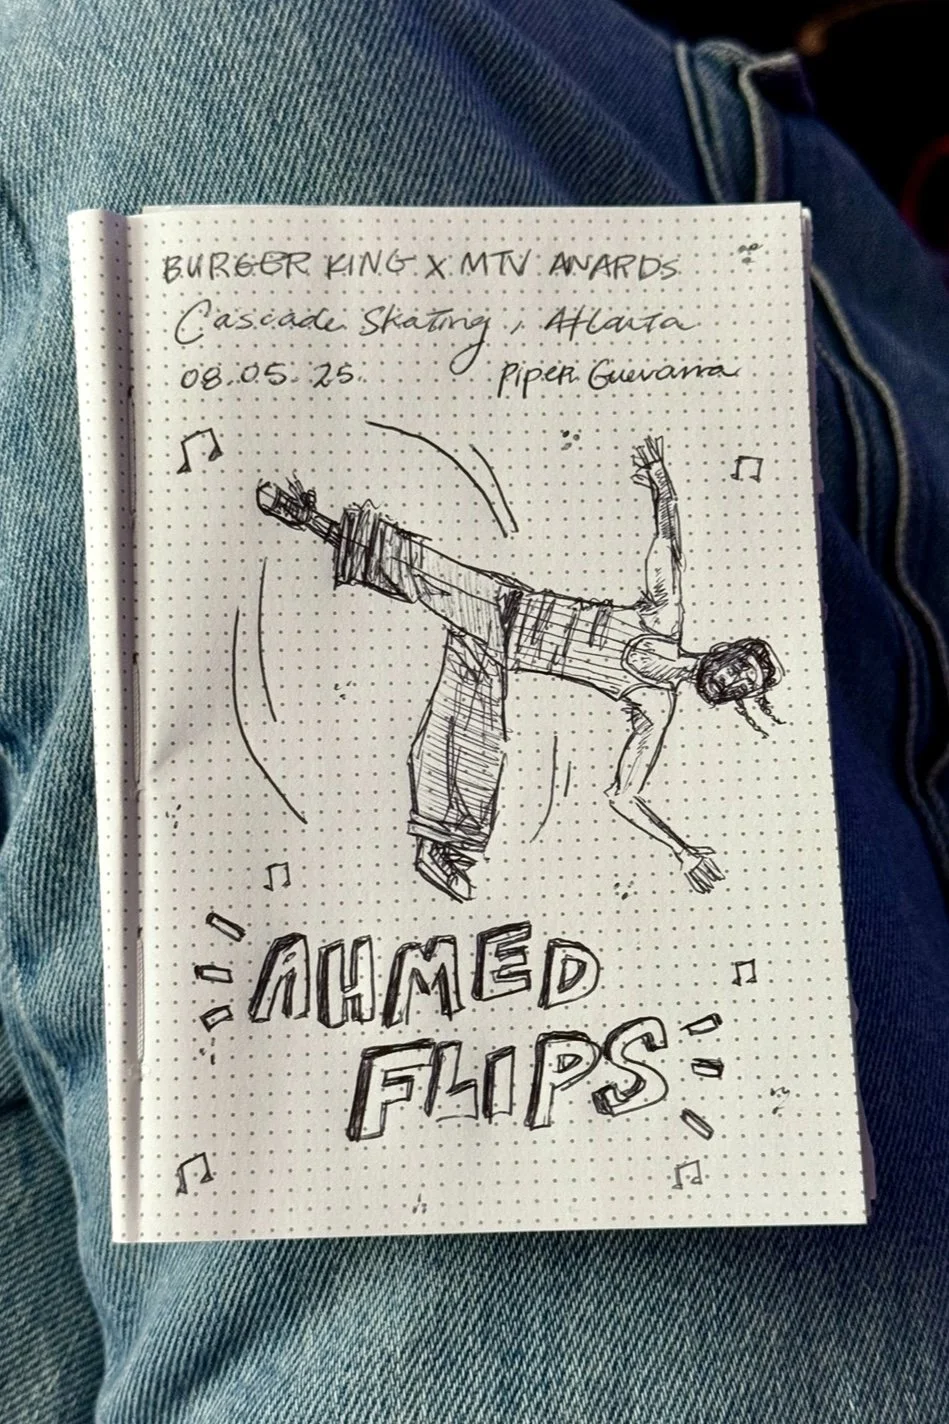 BURGER KING X MTV AWARDS
Cascade Skating, Atlanta
08.05.25. Piper Guevarra
AHMED
FLIPS